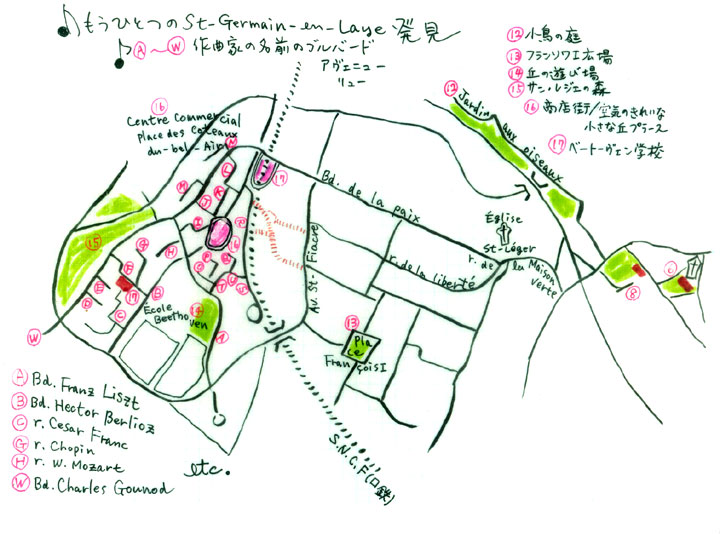 もうひとつのSt-Germain-en-Laye 発見
Ⓐ〜Ⓦ 作曲家の名前のブルバード
アヴェニュー
リュー
⑫ 小鳥の庭
⑬ フランソワⅠ広場
⑭ 丘の遊び場
⑮ サン・レジェの森
⑯ 商店街/空気のきれいな
小さな丘プラース
⑰ ベートーヴェン学校
⑯
Centre Commercial
Place des Coteaux
du-bel-Air
⑫
Jardin aux oiseaux
⑰
Bd. de la paix
Église
St-Léger
r. de la liberté
r. de
la Maison
verte
Av. St-Fiacre
⑮
École
Beethoven
⑭
⑬
Place
François I
⑧
S.N.C.F(国鉄)
Ⓦ
Ⓐ Bd. Franz Liszt
Ⓑ Bd. Hector Berlioz
Ⓒ r. Cesar Franc
Ⓖ r. Chopin
Ⓗ r. W. Mozart
Ⓦ Bd. Charles Gounod
etc.